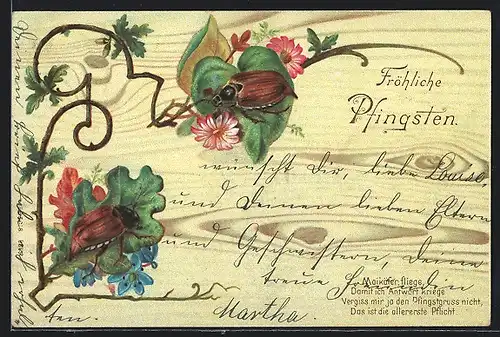 Fröhliche
Pfingsten.
wünscht Dir, liebe Louise,
und Deinen lieben Eltern
und Geschwistern, deine
treue Freundin
Martha.
Maikäfer fliege,
Damit ich Antwort kriege
Vergiss mir ja den Pfingstgruss nicht,
Das ist die allererste Pflicht.
ten.